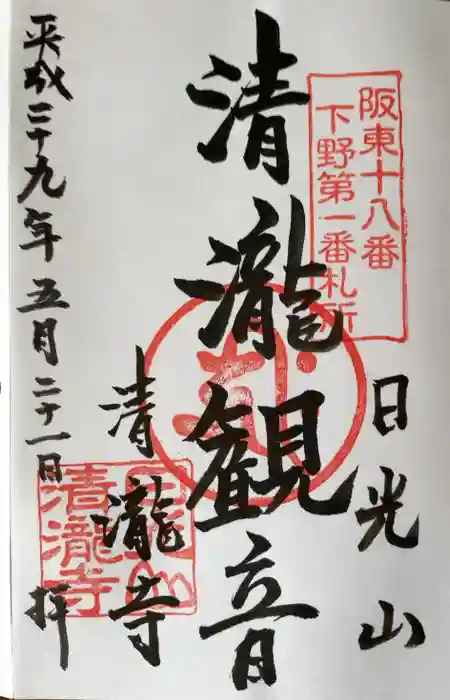 阪東十八番
下野第一番札所
日光山
清瀧観音
清瀧寺
清瀧寺
平成二十九年五月二十一日
拝